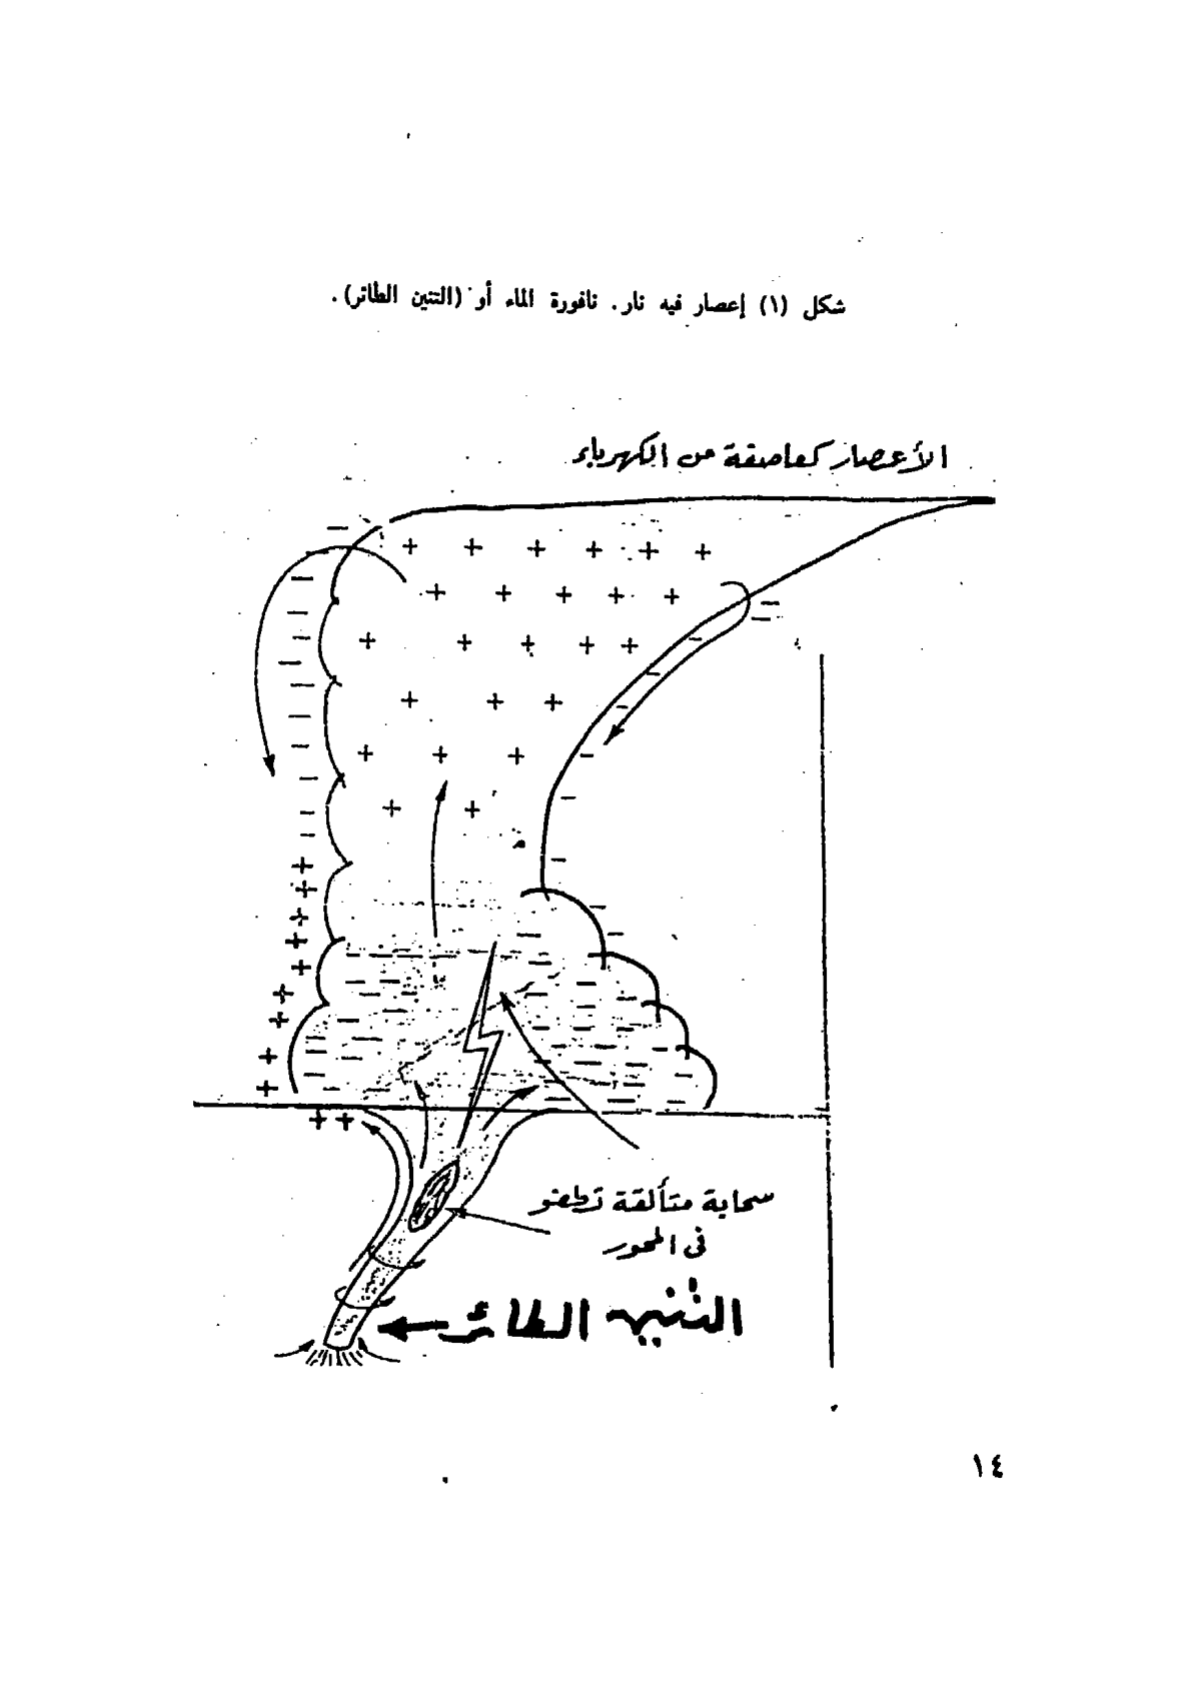 شكل (١) إعصار فيه نار. نافورة الماء أو (التنين الطائر).
الأعصار كعاصفة من الكهرباء
سحابة متألقة تطفو
فى المحور
التنين الطائر
١٤